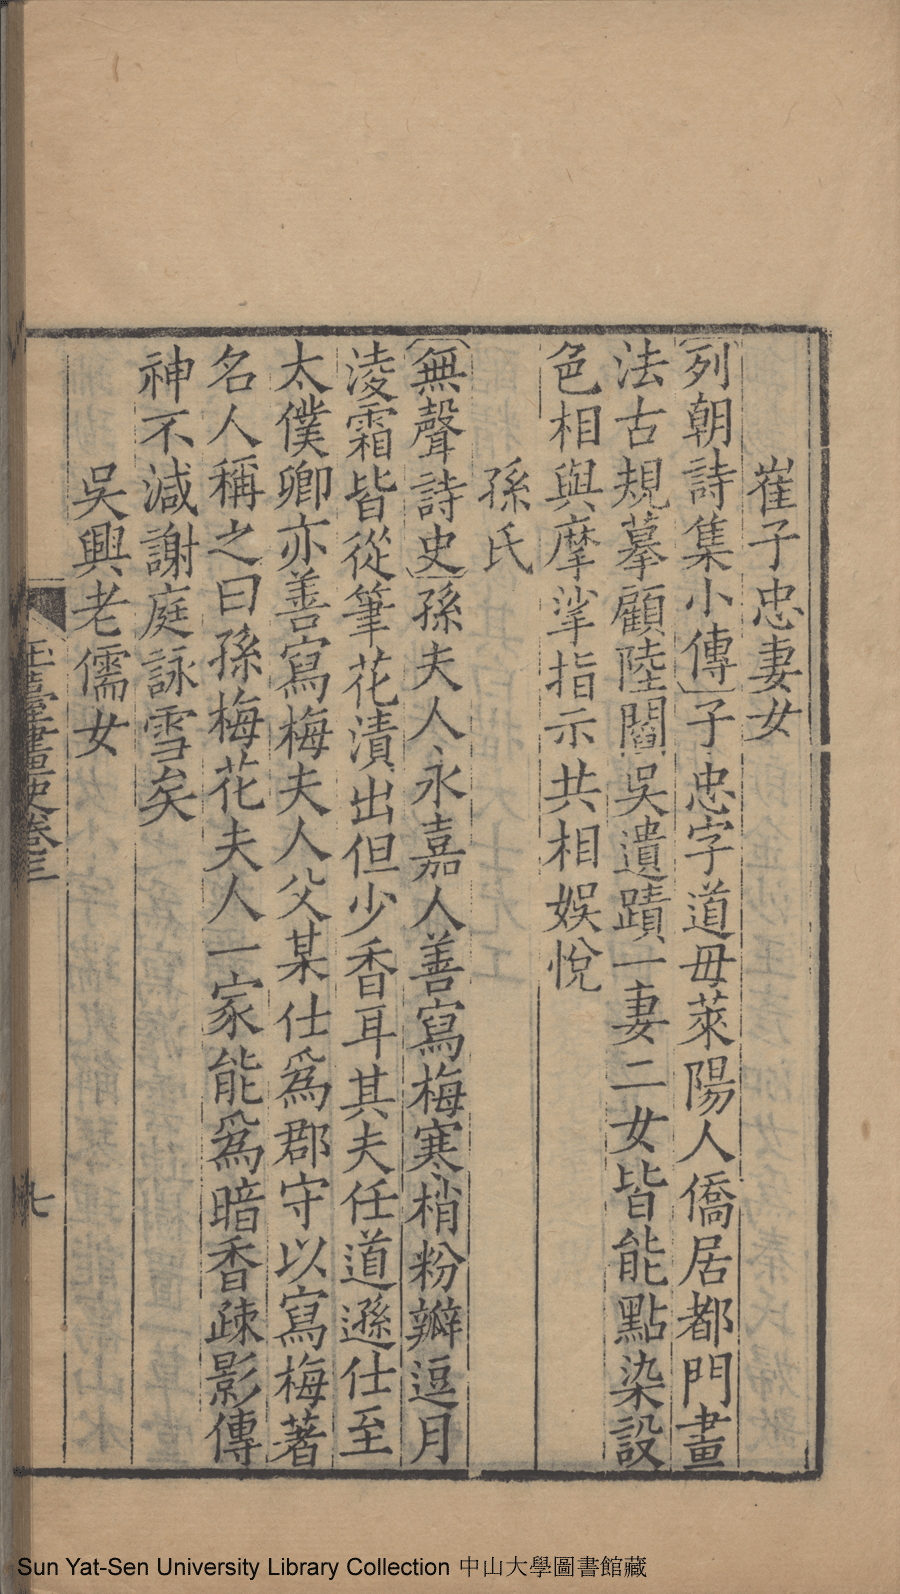 崔子忠妻女
〔列朝詩集小傳〕子忠字道毋萊陽人僑居都門畫
法古規摹顧陸閻吳遺蹟一妻二女皆能點染設
色相與摩挲指示共相娛悅
孫氏
〔無聲詩史〕孫夫人永嘉人善寫梅寒梢粉瓣逗月
淩霜皆從筆花漬出但少香耳其夫任道遜仕至
太僕卿亦善寫梅夫人父某仕爲郡守以寫梅著
名人稱之曰孫梅花夫人一家能爲暗香疎影傳
神不減謝庭詠雪矣
吳興老儒女
玉臺畫史卷三
七
Sun Yat-Sen University Library Collection 中山大學圖書館藏